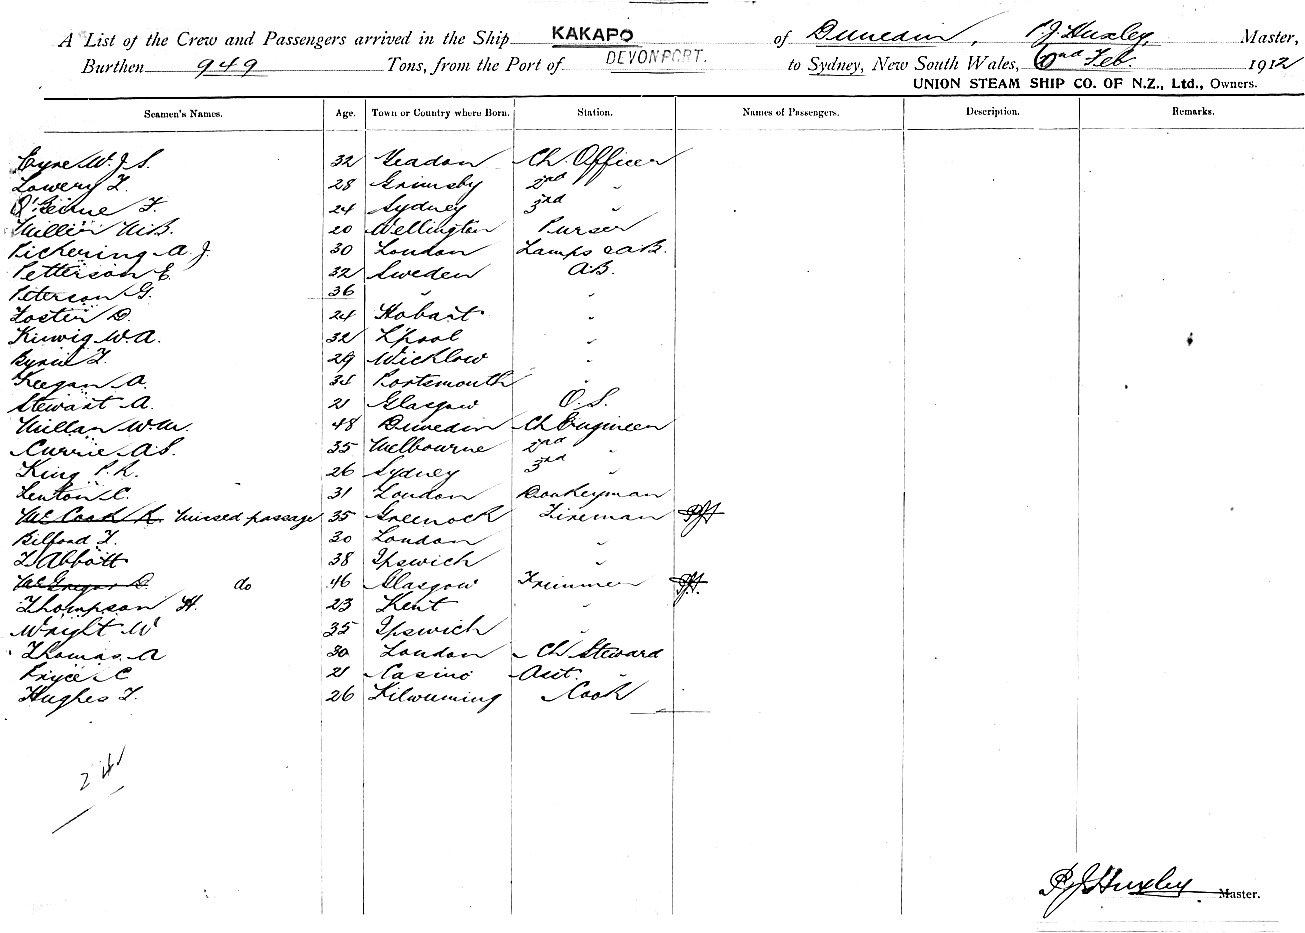 A List of the Crew and Passengers arrived in the Ship KAKAPO of Dunedin, P.J. Huxley, Master,
Burthen 949 Tons, from the Port of DEVONPORT. to Sydney, New South Wales, 2nd Feb. 1912
UNION STEAM SHIP CO. OF N.Z., Ltd., Owners.
Seamen's Names. Age. Town or Country where Born. Station. Names of Passengers. Description. Remarks.
Eyre W.J.S. 32 Yeadon Ch. Officer
Lowery T. 28 Grimsby 2nd "
O'Beirne F. 24 Sydney 3rd "
20 Wellington Purser
Pickering A.J. 30 London Lamps & A.B.
Petterson E. 32 Sweden A.B.
Peterson G. 36 " "
Foster D. 24 Hobart "
Kirwig W.A. 32 L'pool "
Byrne T. 29 Wicklow "
Keegan A. 34 Portsmouth "
Stewart A. 21 Glasgow O.S.
Millan Wm. 48 Dunedin Ch Engineer
Currie A.S. 35 Melbourne 2nd "
King P.R. 26 Sydney 3rd "
Lenton C. 31 London Donkeyman
McCook R. missed passage 35 Greenock Fireman PJH
Bilford T. 30 London "
T Abbott 38 Ipswich "
McGregor D. do 46 Glasgow Trimmer PJH
Thompson H. 23 Kent "
Wright W 35 Ipswich "
Thomas A 30 London Ch Steward
Pryce C 21 Casino Asst. "
Hughes T. 26 Cook
24
P.J. Huxley Master.